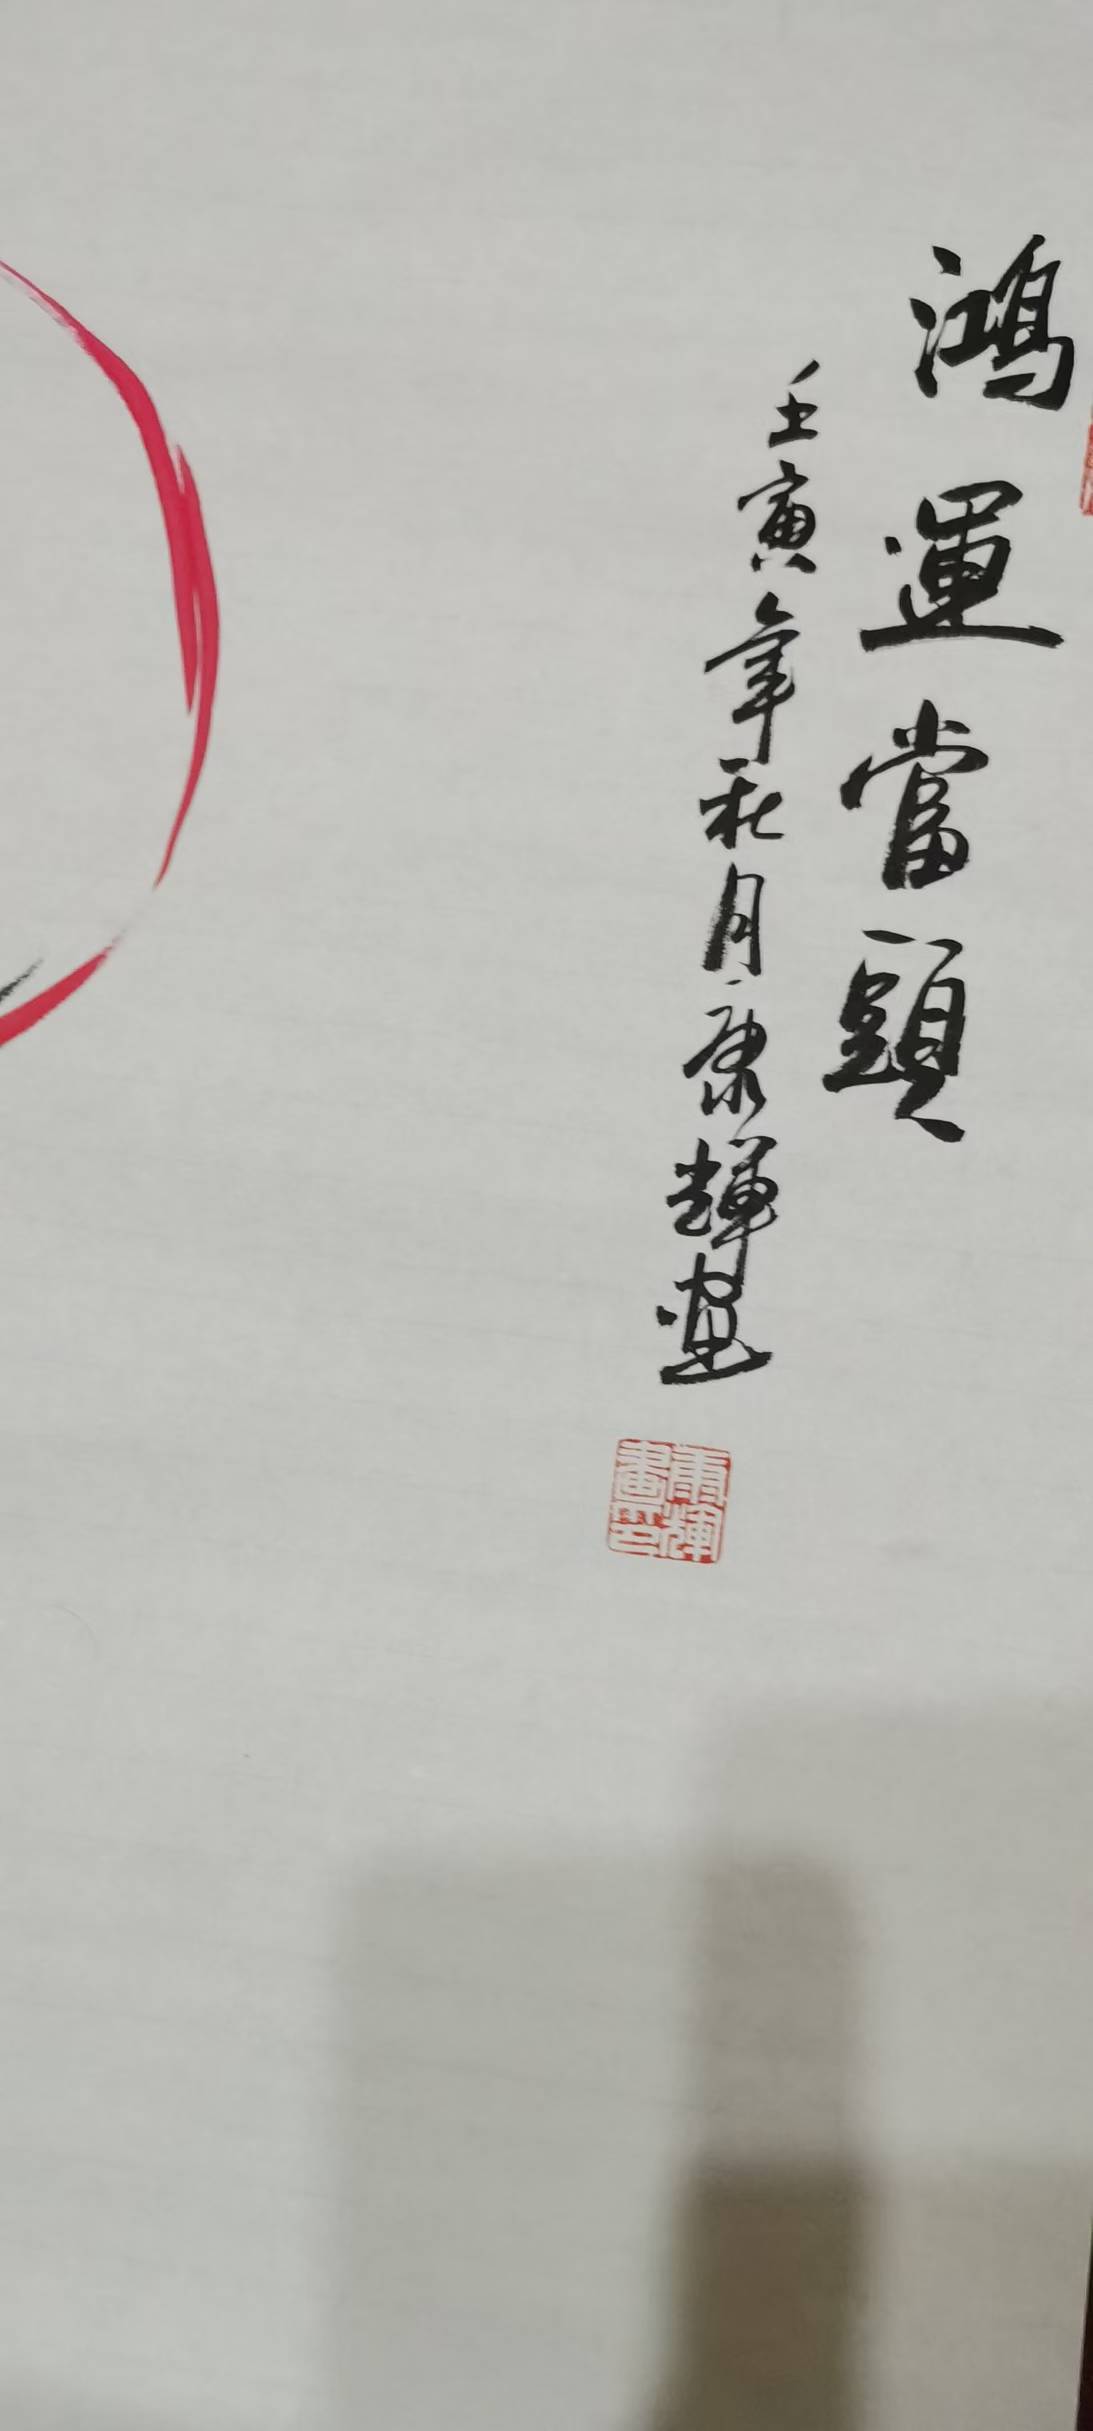 鴻運當頭
壬寅年秋月康輝畫
康輝
畫印